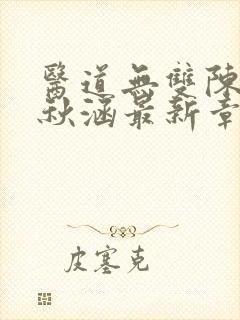 醫道無雙陳
秋涵最新章
皮塞克